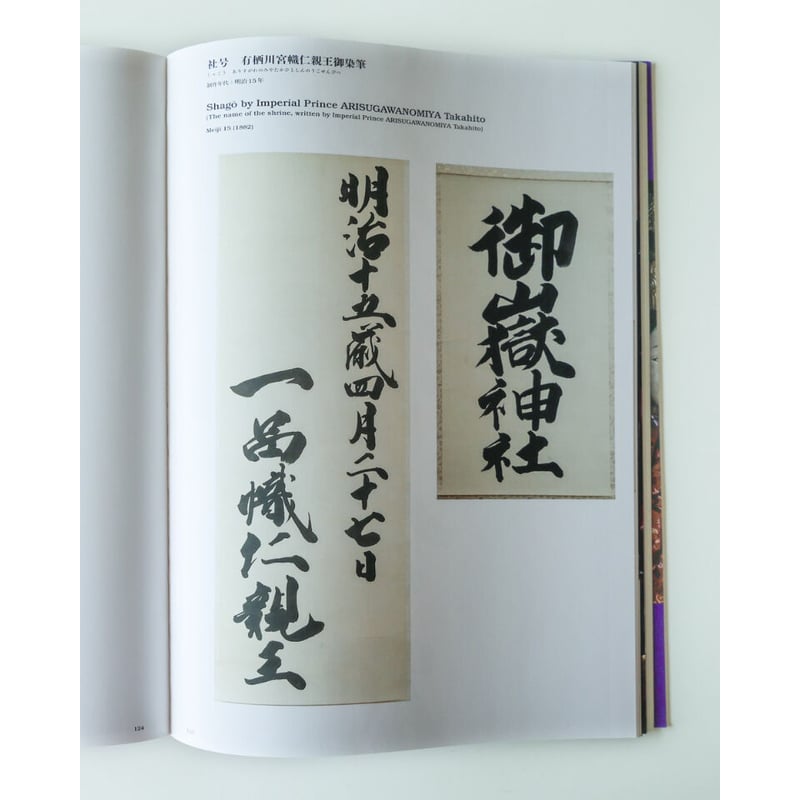 社号　有栖川宮幟仁親王御染筆
しゃごう　ありすがわのみやたかひとしんのうごせんぴつ
制作年代：明治15年
Shagō by Imperial Prince ARISUGAWANOMIYA Takahito
(The name of the shrine, written by Imperial Prince ARISUGAWANOMIYA Takahito)
Meiji 15 (1882)
御嶽神社
明治十五歳四月二十七日
一品幟仁親王
124